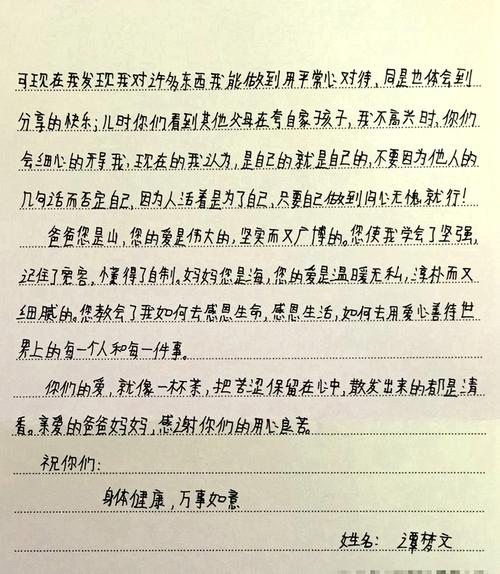 可现在我发现我对许多东西我能做到用平常心对待，同是也体会到
分享的快乐；儿时你们看到其他父母在夸自家子孩子，我不高兴时，你们
会细心的开导我，现在的我认为，是自己的就是自己的，不要因为他人的
几句话而否定自己，因为人活着是为了自己，只要自己做到问心无愧就行！
爸爸您是山，您的爱是伟大的，坚实而又广博的。您使我学会了坚强，
记住了宽容，懂得了自制。妈妈您是海，您的爱是温暖无私，淳朴而又
细腻的。您教会了我如何去感恩生命，感恩生活，如何去用爱心善待世
界上的每一个人和每一件事。
你们的爱，就像一杯茶，把苦涩保留在心中，散发出来的都是清
香。亲爱的爸爸妈妈，感谢你们的用心良苦。
祝你们：
身体健康，万事如意
姓名：谭梦文